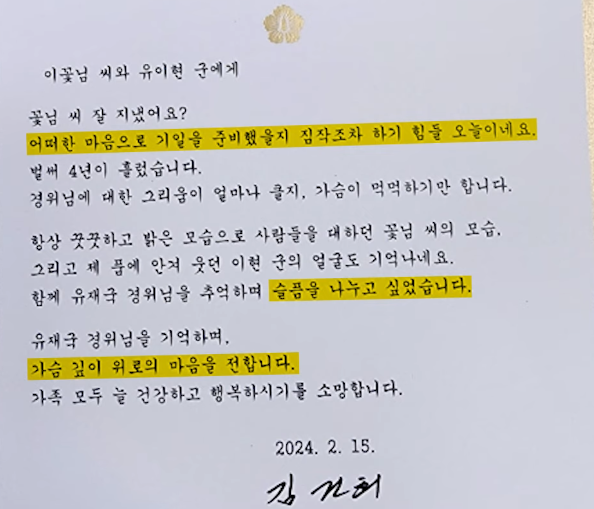 이꽃님 씨와 유이현 군에게
꽃님 씨 잘 지냈어요?
어떠한 마음으로 기일을 준비했을지 짐작조차 하기 힘들 오늘이네요.
벌써 4년이 흘렀습니다.
경위님에 대한 그리움이 얼마나 클지, 가슴이 먹먹하기만 합니다.
항상 꿋꿋하고 밝은 모습으로 사람들을 대하던 꽃님 씨의 모습,
그리고 제 품에 안겨 웃던 이현 군의 얼굴도 기억나네요.
함께 유재국 경위님을 추억하며 슬픔을 나누고 싶었습니다.
유재국 경위님을 기억하며,
가슴 깊이 위로의 마음을 전합니다.
가족 모두 늘 건강하고 행복하시기를 소망합니다.
2024. 2. 15.
김건희